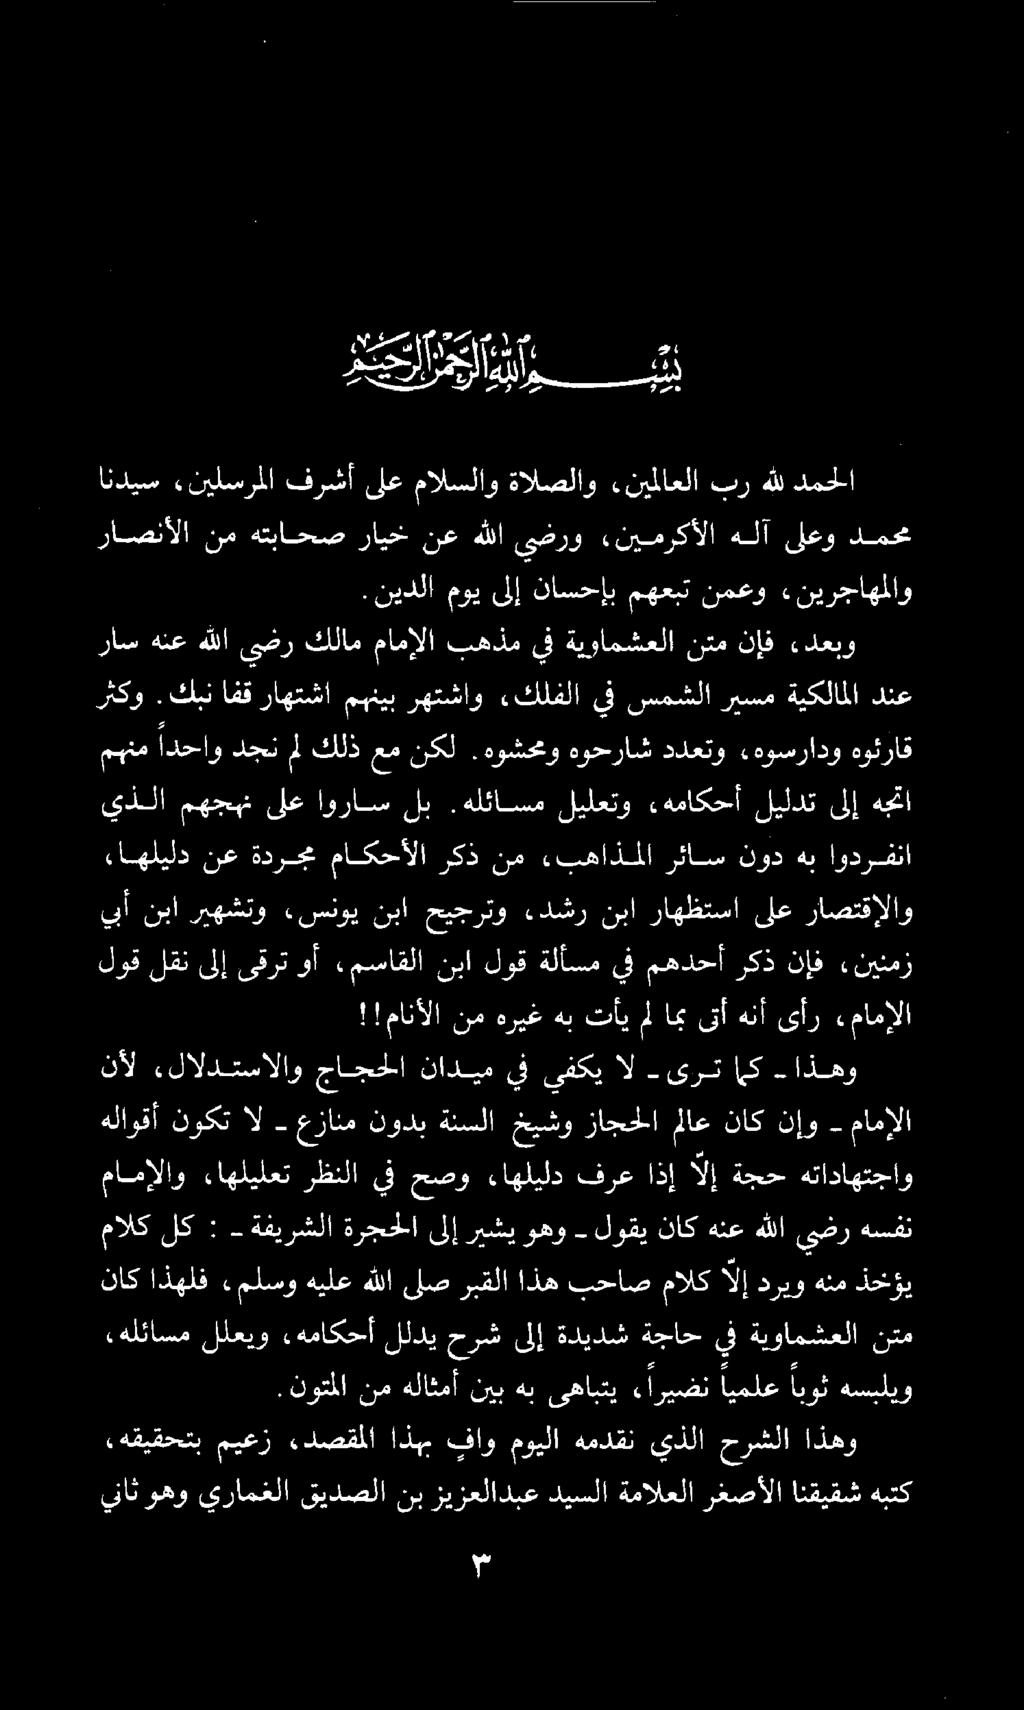 بسم الله الرحمن الرحيم
الحمد لله رب العالمين، والصلاة والسلام على أشرف المرسلين، سيدنا
محمد وعلى آله الأكرمين، ورضي الله عن خيار صحابته من الأنصار
والمهاجرين، وعمن تبعهم بإحسان إلى يوم الدين.
وبعد، فإن متن العشماوية في مذهب الإمام مالك رضي الله عنه سار
عند المالكية مسير الشمس في الفلك، واشتهر بينهم اشتهار قفا نبك. وكثر
قارئوه ودارسوه، وتعدد شارحوه ومحشوه. لكن مع ذلك لم نجد واحداً منهم
اتجه إلى تدليل أحكامه، وتعليل مسائله. بل ساروا على نهجهم الذي
انفردوا به دون سائر المذاهب، من ذكر الأحكام مجردة عن دليلها،
والإقتصار على استظهار ابن رشد، وترجيح ابن يونس، وتشهير ابن أبي
زمنين، فإن ذكر أحدهم في مسألة قول ابن القاسم، أو ترقى إلى نقل قول
الإمام، رأى أنه أتى بما لم يأت به غيره من الأنام!!
وهذا - كما ترى - لا يكفي في ميدان الحجاج والاستدلال، لأن
الإمام - وإن كان عالم الحجاز وشيخ السنة بدون منازع - لا تكون أقواله
واجتهاداته حجة إلاّ إذا عرف دليلها، وصح في النظر تعليلها، والإمام
نفسه رضي الله عنه كان يقول - وهو يشير إلى الحجرة الشريفة - : كل كلام
يؤخذ منه ويرد إلاّ كلام صاحب هذا القبر صلى الله عليه وسلم، فلهذا كان
متن العشماوية في حاجة شديدة إلى شرح يدلل أحكامه، ويعلل مسائله،
ويلبسه ثوباً علمياً نضيراً، يتباهى به بين أمثاله من المتون.
وهذا الشرح الذي نقدمه اليوم وافٍ بهذا المقصد، زعيم بتحقيقه،
كتبه شقيقنا الأصغر العلامة السيد عبدالعزيز بن الصديق الغماري وهو ثاني
٣